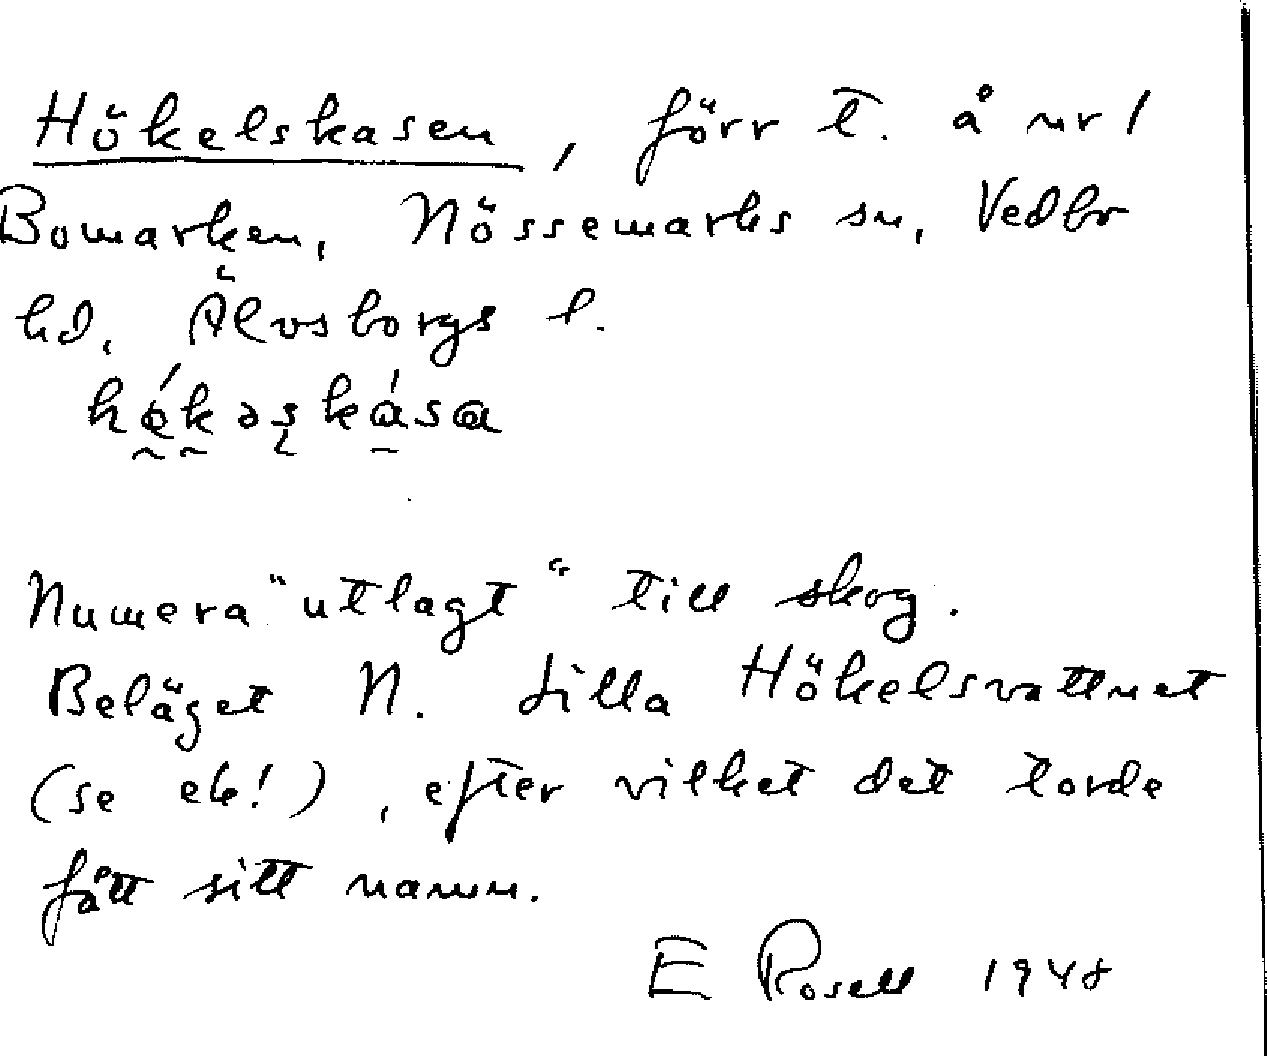 Hökelskasen, förr t. å nr 1
Bomarken, Nössemarks sn, Vedbo
hd, Älvsborgs l.
Numera "utlagt" till skog.
Beläget N. Lilla Hökelsvattnet
(se db!), efter vilket det torde
fått sitt namn.
E Rosell 1948